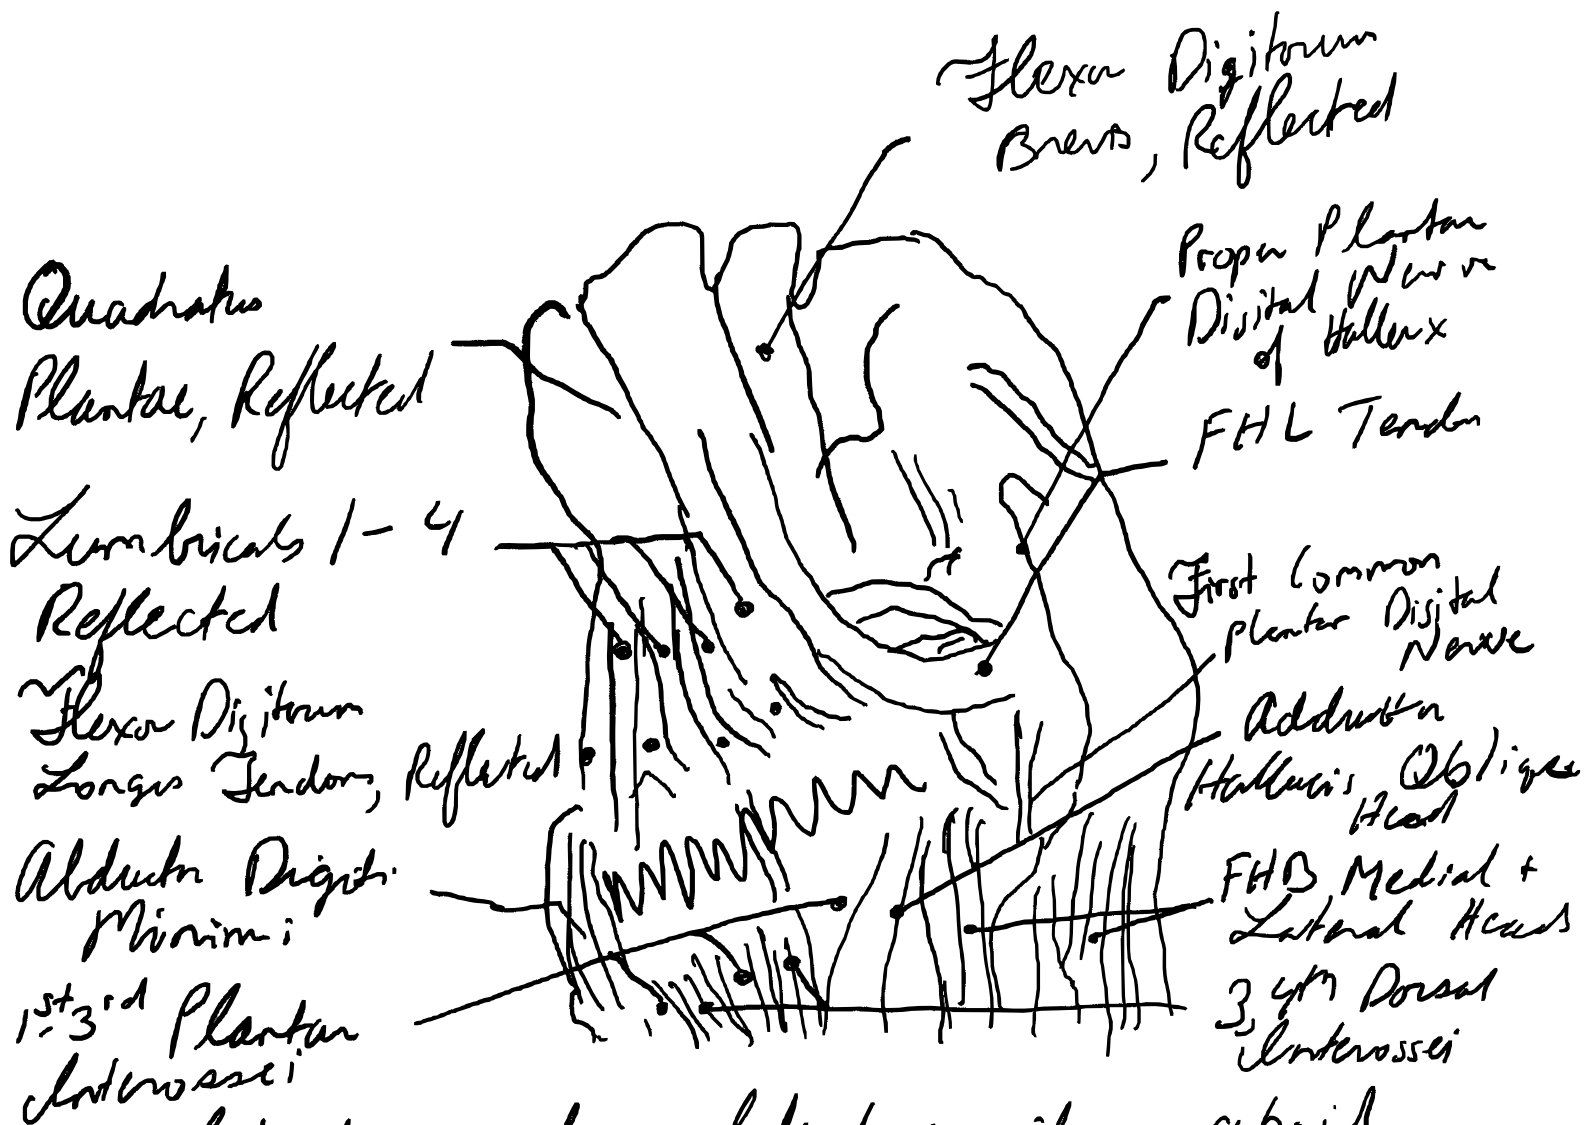 Flexor Digitorum
Brevis, Reflected
Proper Plantar
Digital Nerve
of Hallux
FHL Tendon
First Common
Plantar Digital
Nerve
Adductor
Hallucis Oblique
Head
FHB Medial +
Lateral Heads
3, 4th Dorsal
Interossei
Quadratus
Plantae, Reflected
Lumbricals 1-4
Reflected
Flexor Digitorum
Longus Tendons, Reflected
Abductor Digiti
Minimi
1st-3rd Plantar
Interossei